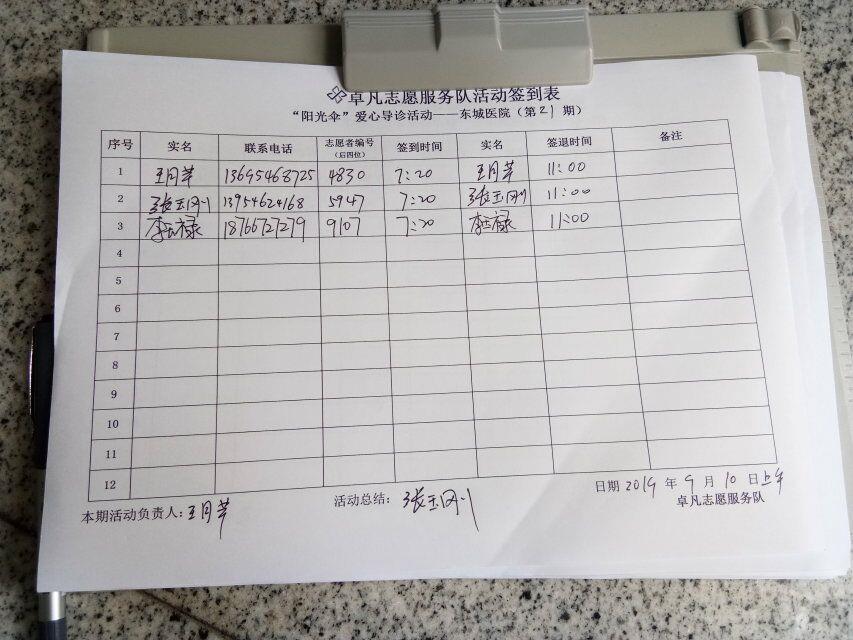 卓凡志愿服务队活动签到表
“阳光伞”爱心导诊活动——东城医院（第21期）
序号 实名 联系电话 志愿者编号（后四位） 签到时间 实名 签退时间 备注
1 王月苹 13695468725 4830 7:20 王月苹 11:00
2 张玉刚 13954624168 5947 7:20 张玉刚 11:00
3 李玉禄 18766727279 9107 7:20 李玉禄 11:00
4
5
6
7
8
9
10
11
12
本期活动负责人:王月苹 活动总结：张玉刚 日期 2019 年 9 月 10 日上午
卓凡志愿服务队